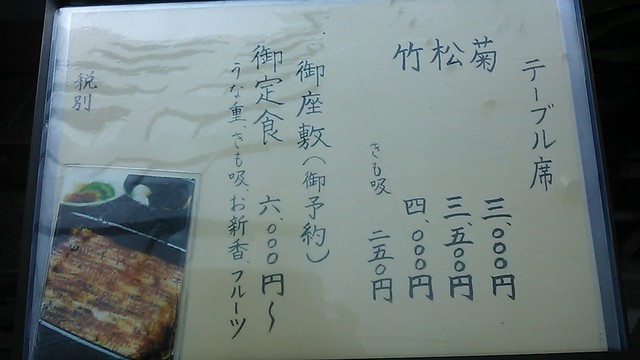 テーブル席
菊 三、〇〇〇円
松 三、五〇〇円
竹 四、〇〇〇円
きも吸 二五〇円
御座敷(御予約)
御定食 六、〇〇〇円～
うな重、きも吸、お新香、フルーツ
税別